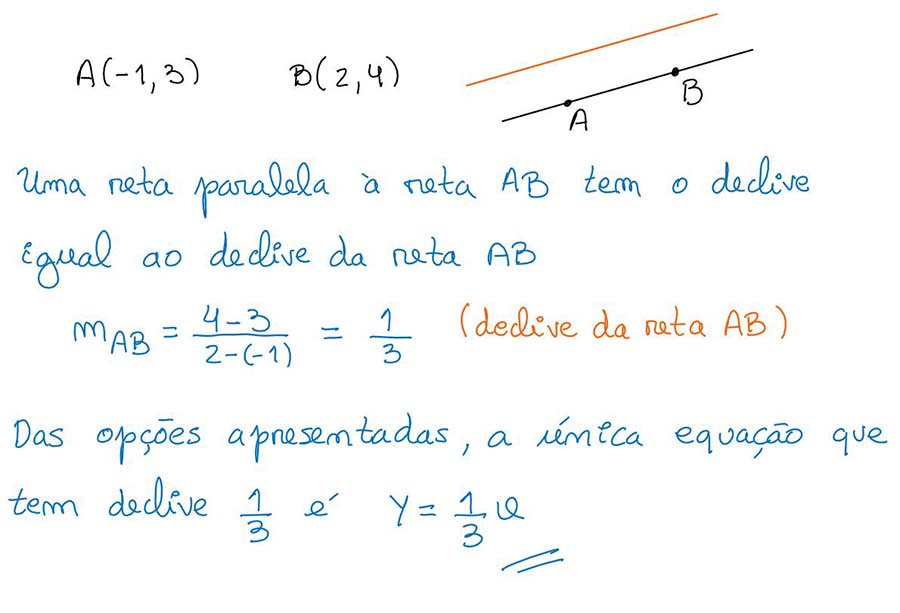 A(-1,3) B(2,4)
A B
Uma reta paralela à reta AB tem o declive
igual ao declive da reta AB
m_AB = (4-3)/(2-(-1)) = 1/3 (declive da reta AB)
Das opções apresentadas, a única equação que
tem declive 1/3 é y = 1/3 x